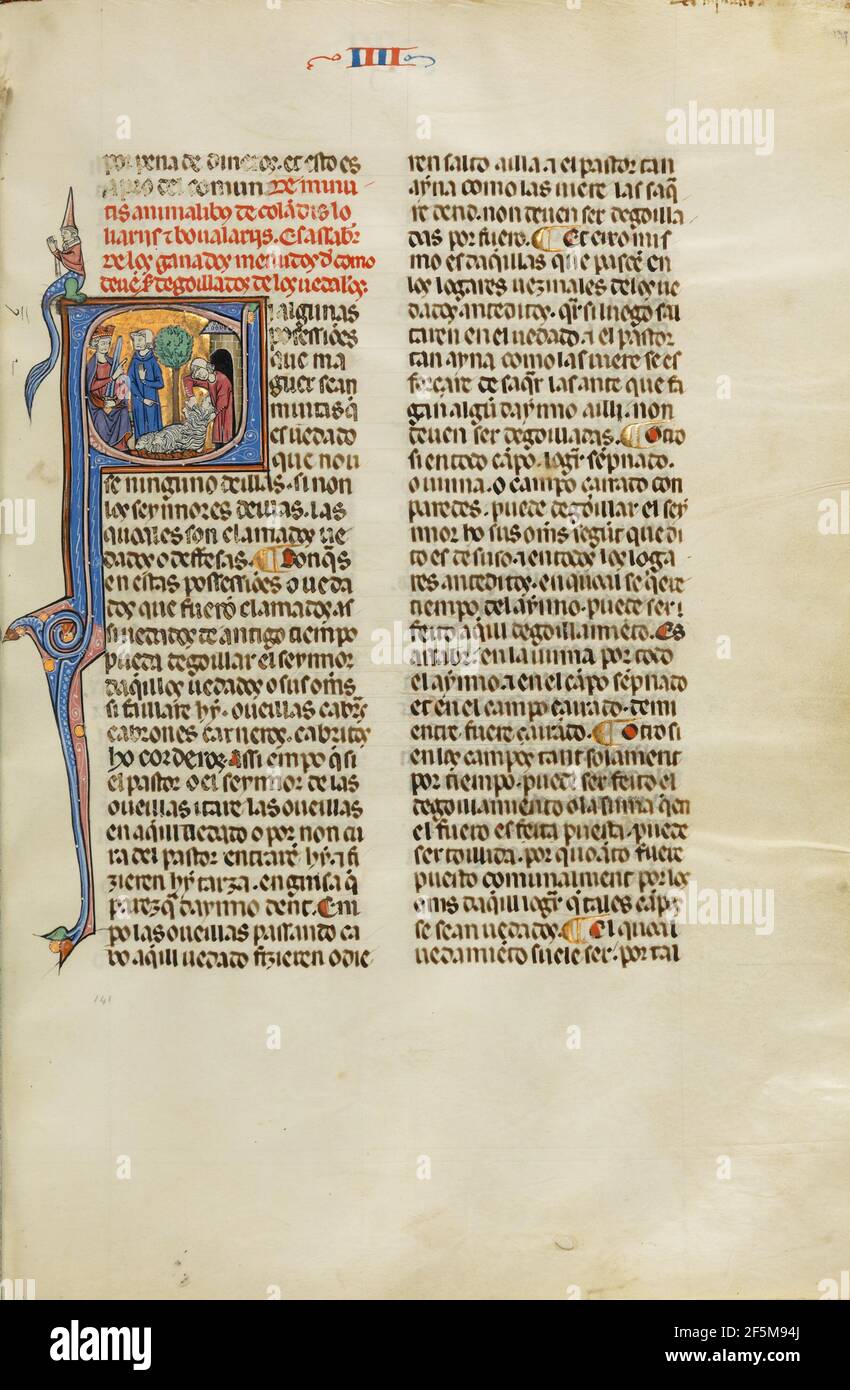 IIII
por pena de dineros. et esto es
a pro del comun De minu
tis animalibꝯ de colādis lo
liarijs ⁊ boualarijs. Es assabr̄
re los ganados menudos d̄ como
deuē ser degollados de los uedalos.
algunas
possessiōes
que ma
guer sean
muitas q̄
es uedado
que non
se ninguno deillas. si non
los seynnores deillas. las
quoales son clamados ue
dados o deffesas. Donq̄s
en estas possessiōes o ueda
dos que fuerō clamados as
si uedados de antigo tiempo
pueda degoillar el seynnor
daq̄illos uedados o sus om̄s
si faillare hy. oueillas cabr̄s
cabrones carneros. cabritos
ho corderos. Assi empo q̄ si
el pastor o el seynnor de las
oueillas itare las oueillas
en aq̄ill uedado o por non cu
ra del pastor entrarē hy. ⁊ fi
zieren hy tarza. en guisa q̄
parezq̄ daynno dent. Em
po las oueillas passando ca
bo aq̄ill uedado fizieren o die
ren salto ailla. ⁊ el pastor tan
ayna como las uiere las saq̄
re dend. non deuen ser degoilla
das por fuero. Et otro mis
mo es daq̄illas que pascē en
los logares uezinales de los ue
dados anteditos. q̄r si luego sal
taren en el uedado. ⁊ el pastor
tan ayna como las uiere se es
forçare de saq̄r las ante que fa
gan algū daynno ailli. non
deuen ser degoilladas. Otro
si en todo cāpo. logr̄ sēpnado.
o uinna. o campo carrado con
paredes. puede degoillar el sey
nnor ho sus om̄s segūt que di
to es de suso. ⁊ en todos los loga
res anteditos. en quoal se q̄ere
tiempo del aynno. puede ser
feito aq̄ill degoillamiēto. Es
assabr̄. en la uinna por todo
el aynno. ⁊ en el cāpo sēpnado
et en el campo carrado. demi
entre fuere carrado. Otro si
en los campos tant solament
por tiempo. puede ser feito el
degoillamiento o la sinna q̄en
el fuero es feita puesta. puede
ser toillida. por quoāto fuere
puesto comunalment por los
om̄s daq̄ill logr̄ q̄ tales cāpos
se sean uedados. El quoal
uedamiēto suele ser. por tal
141
alamy
Image ID: 2F5M94J
www.alamy.com